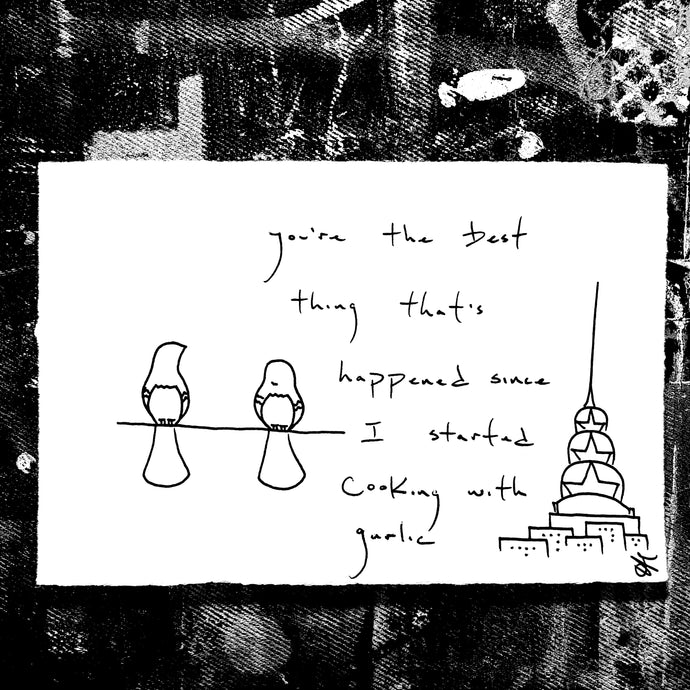 you're the best
thing that's
happened since
I started
cooking with
garlic